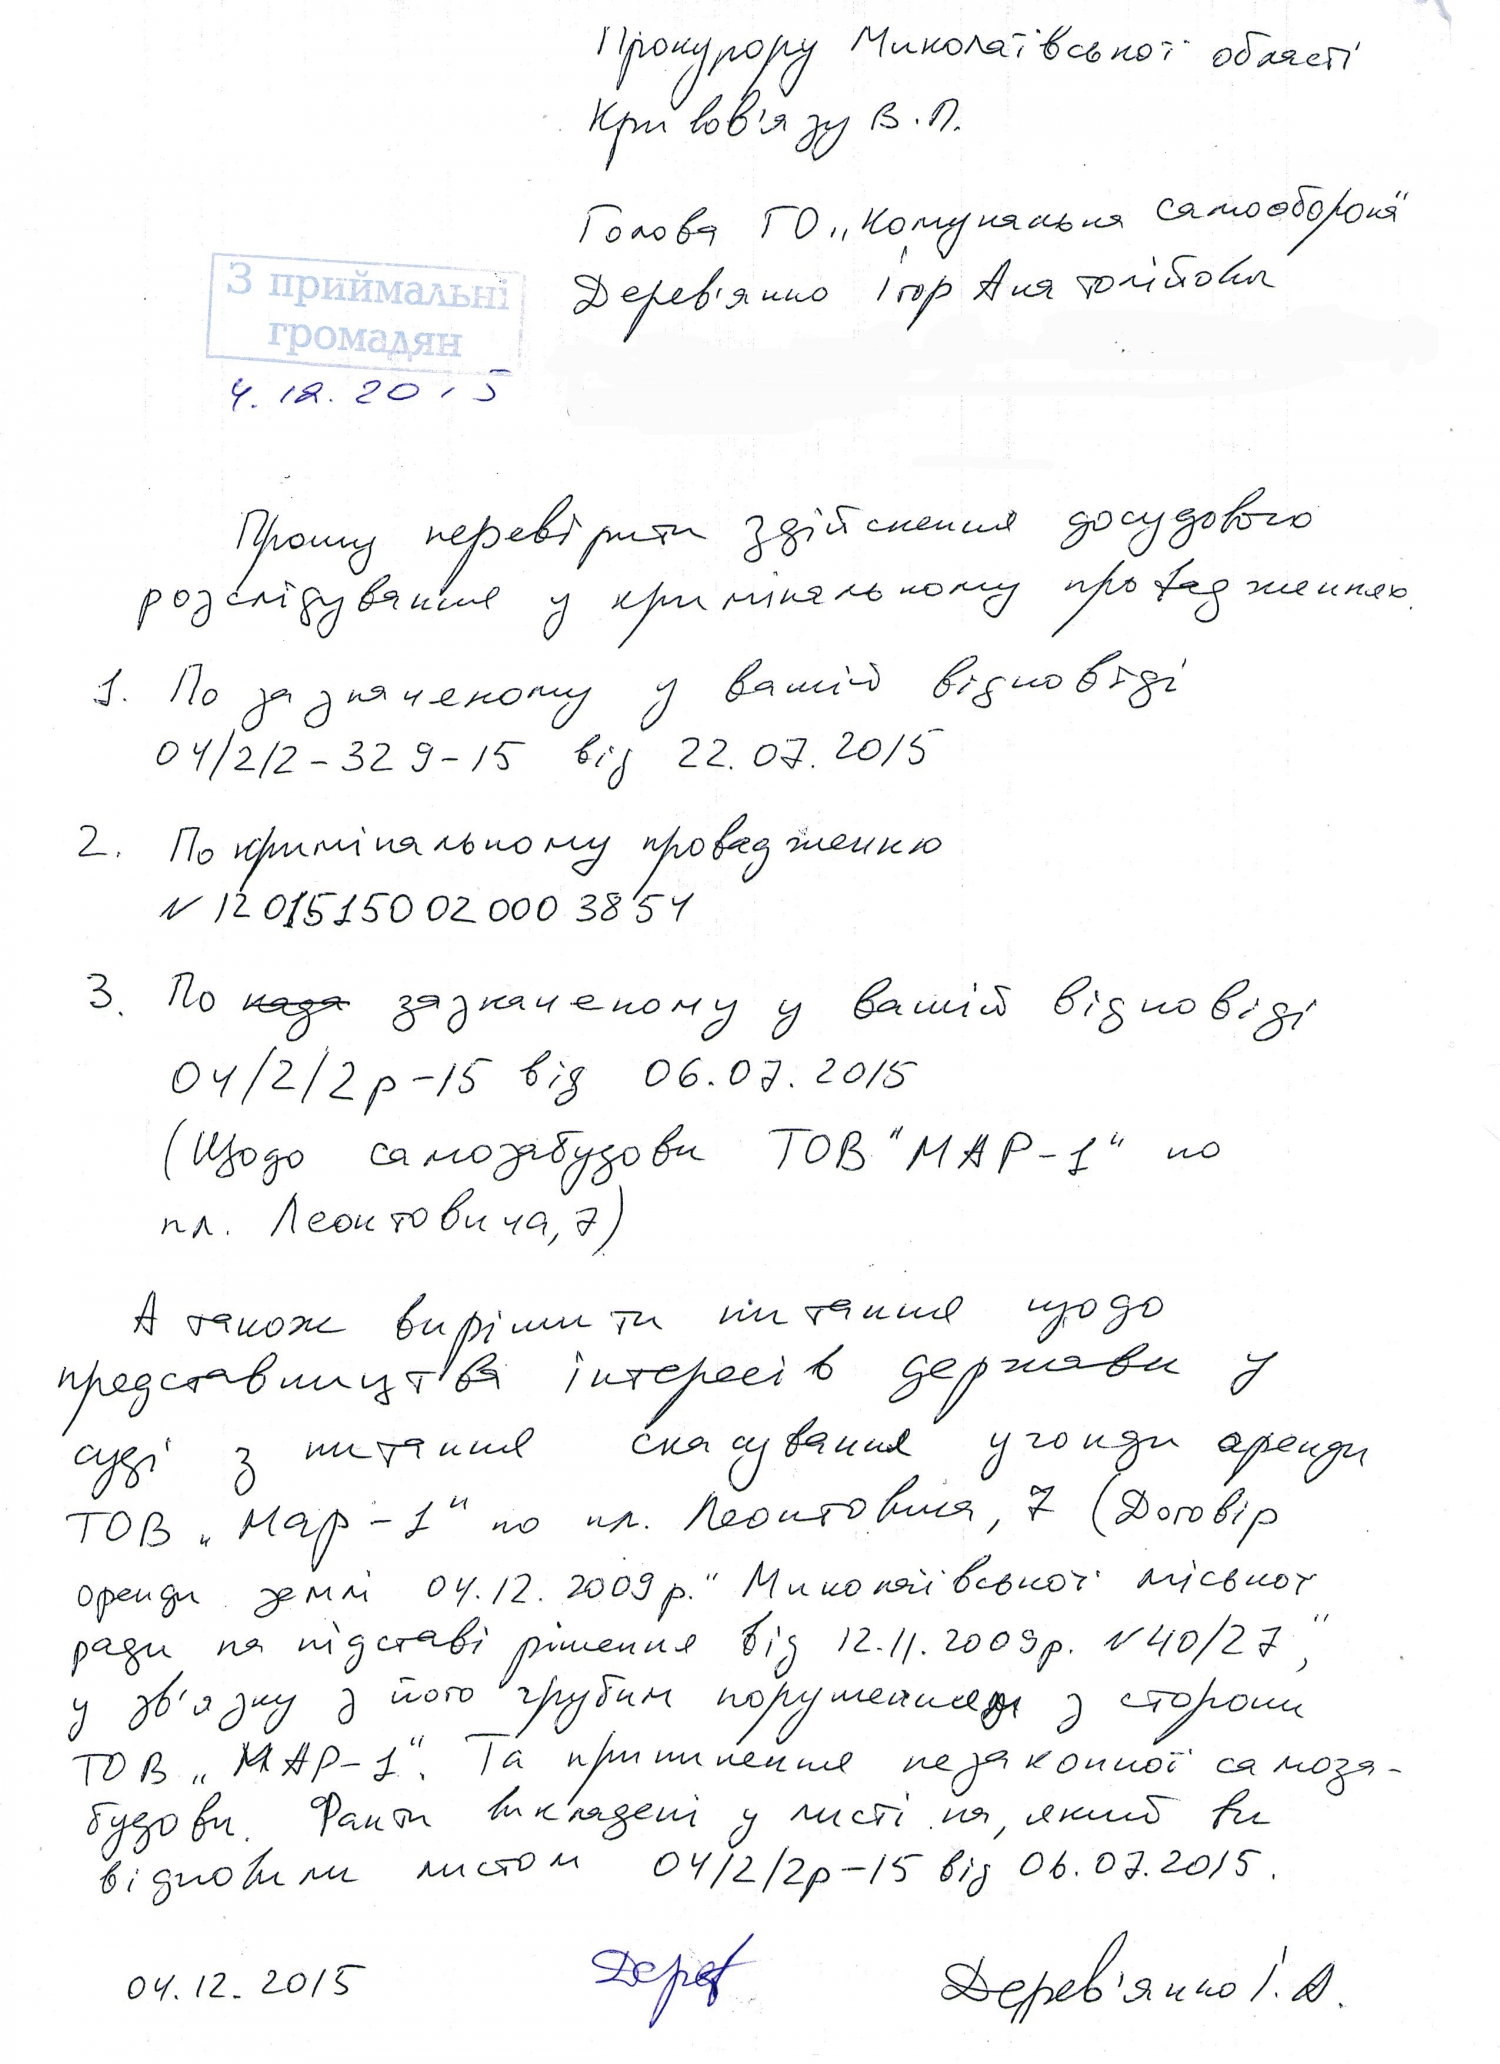 Прокурору Миколаївської області
Кривов'язу В.П.
Голова ГО „Комунальна самооборона"
Дерев'янко Ігор Анатолійович
З приймальні
громадян
4.12.2015
Прошу перевірити здійснення досудового
розслідування у кримінальному провадженнях.
1. По зазначеному у вашій відповіді
04/2/2-329-15 від 22.07.2015
2. По кримінальному провадженню
№ 12015150020003854
3. По зазначеному у вашій відповіді
04/2/2р-15 від 06.07.2015
(Щодо самозабудови ТОВ "МАР-1" по
пл. Леонтовича, 7)
А також вирішити питання щодо
представництва інтересів держави у
суді з питання скасування угоди оренди
ТОВ „Мар-1" по пл. Леонтовича, 7 (Договір
оренди землі 04.12.2009р." Миколаївської міської
ради на підставі рішення від 12.11.2009р. №40/27",
у зв'язку з його грубим порушенням з сторони
ТОВ „МАР-1". Та припинення незаконної самоза-
будови. Факти викладені у листі на, який ви
відповіли листом 04/2/2р-15 від 06.07.2015.
04.12.2015 Дерев Дерев'янко І.А.